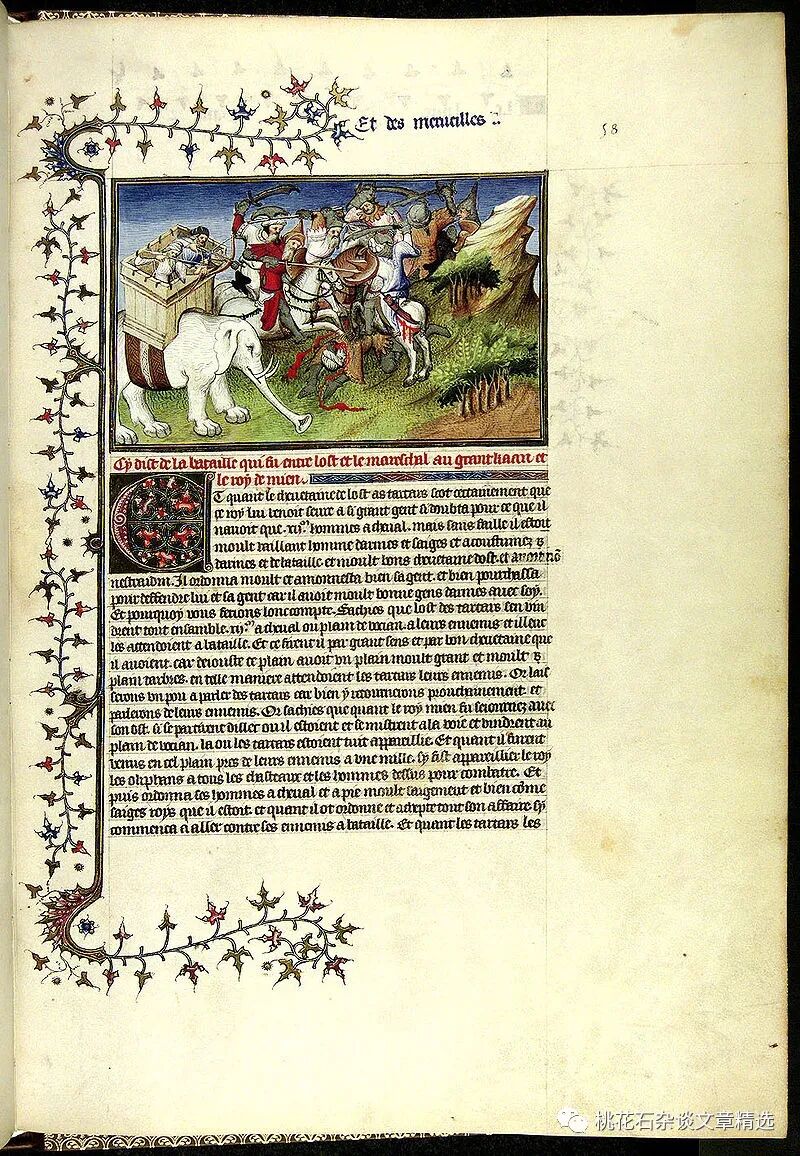 Et des merueilles
58
Cy dist de la bataille qui fu entre lost et le mareschal au grant kaan et
le roy de mien.
Et quant le cheuetaine de lost as tartars scot certainement que
ce roy lui venoit seure a si grant gent si doubta pour ce que il
nauoit que .xij. hommes a cheual. mais sans faille il estoit
moult vaillant homme darmes et saiges et acoustumez
darmes et de bataille et moult bons cheuetaine dost. et auoit non
nestradin. Il ordonna moult et amonnesta bien sa gent. et bien pourchassa
pour deffendre lui et sa gent car il auoit moult bonne gens darmes auec soy.
Et pourquoy vous feroie loncompte. Sachies que lost des tartars sen vin
drent tout ensamble .xij. a cheual ou plain de vocian. a leurs ennemis et illeuc
les attendoient a bataille. Et ce firent il par grant sens et par bon cheuetaine que
il auoient. car deiouste ce plain auoit vn plain moult grant et moult
plain darbres. en telle maniere attendoient les tartars leurs ennemis. Or lais
serons vn pou a parler des tartars car bien y retournerons prouchainement et
parlerons de leurs ennemis. Or sachies que quant le roy mien fu seiournez auec
son ost. si se partirent dillec ou il estoient et se mistrent a la voie et vindrent au
plain de vocian. la ou les tartars estoient tuit appareillie. Et quant il furent
venus en cel plain pres de leurs ennemis a vne mille. sy fist appareillier le roy
les oliphans a tous les chasteaux et les hommes dessus pour combatre. Et
puis ordonna ses hommes a cheual et a pie moult saigement et bien come
saiges roys que il estoit. et quant il ot ordonne et tout son affaire sy
commenca a aller contre ses ennemis a bataille. Et quant les tartars les
桃花石杂谈文章精选